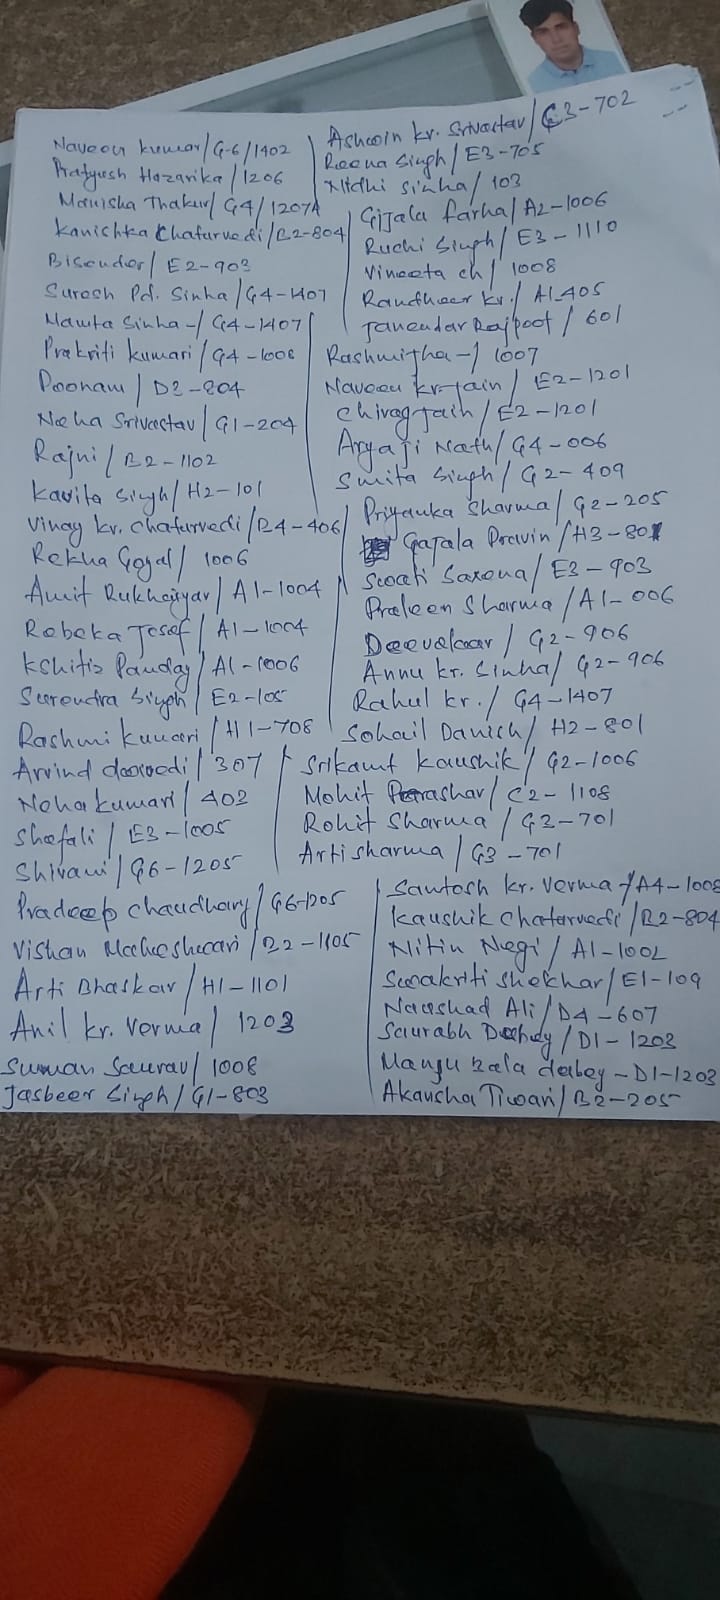 Naveen Kumar/G-6/1402
Pratyush Hazarika/1206
Manisha Thakur/G4/1207A
Kanishka Chaturvedi/B2-804
Bisender/E2-903
Suresh Pd. Sinha/G4-1407
Mamta Sinha-/G4-1407
Prakriti kumari/G4-1006
Poonam/D2-804
Neha Srivastav/G1-204
Rajni/B2-1102
Kavita Singh/H2-101
Vinay kr. Chaturvedi/B4-406
Rekha Goyal/1006
Amit Rukhaiyar/A1-1004
Rebeka Josef/A1-1004
Kshitiz Panday/A1-1006
Surendra Singh/E2-105
Rashmi Kumari/H1-708
Arvind dwivedi/307
Neha kumari/402
Shefali/E3-1005
Shivani/G6-1205
Pradeep Chaudhary/G6-1205
Vishan Maheshwari/B2-1105
Arti Bhaskar/H1-1101
Anil kr. Verma/1203
Suman Saurav/1008
Jasbeer Singh/G1-803
Ashwin kr. Srivastav/G3-702
Reena Singh/E3-705
Nidhi Sinha/103
Gijala farha/A2-1006
Ruchi Singh/E3-1110
Vineeta ch/1008
Randheer kr./A1-405
Janendar Rajpoot/601
Rashmitha-/1007
Naveen kr-Jain/E2-1201
Chirag Jain/E2-1201
Aryaji Nath/G4-006
Smita Singh/G2-409
Priyanka Sharma/G2-205
Gajala Pravin/H3-801
Swati Saxena/E3-903
Praleen Sharma/A1-006
Deevakar/G2-906
Annu kr. Sinha/G2-906
Rahul kr./G4-1407
Sohail Danish/H2-801
Srikant Kaushik/G2-1006
Mohit Parashar/C2-1108
Rohit Sharma/G3-701
Arti sharma/G3-701
Santosh kr. Verma-/A4-1008
Kaushik Chaturvedi/B2-804
Nitin Negi/A1-1002
Swakriti Shekhar/E1-109
Naushad Ali/D4-607
Saurabh Dubey/D1-1203
Manju bala dubey-D1-1203
Akansha Tiwari/B2-205